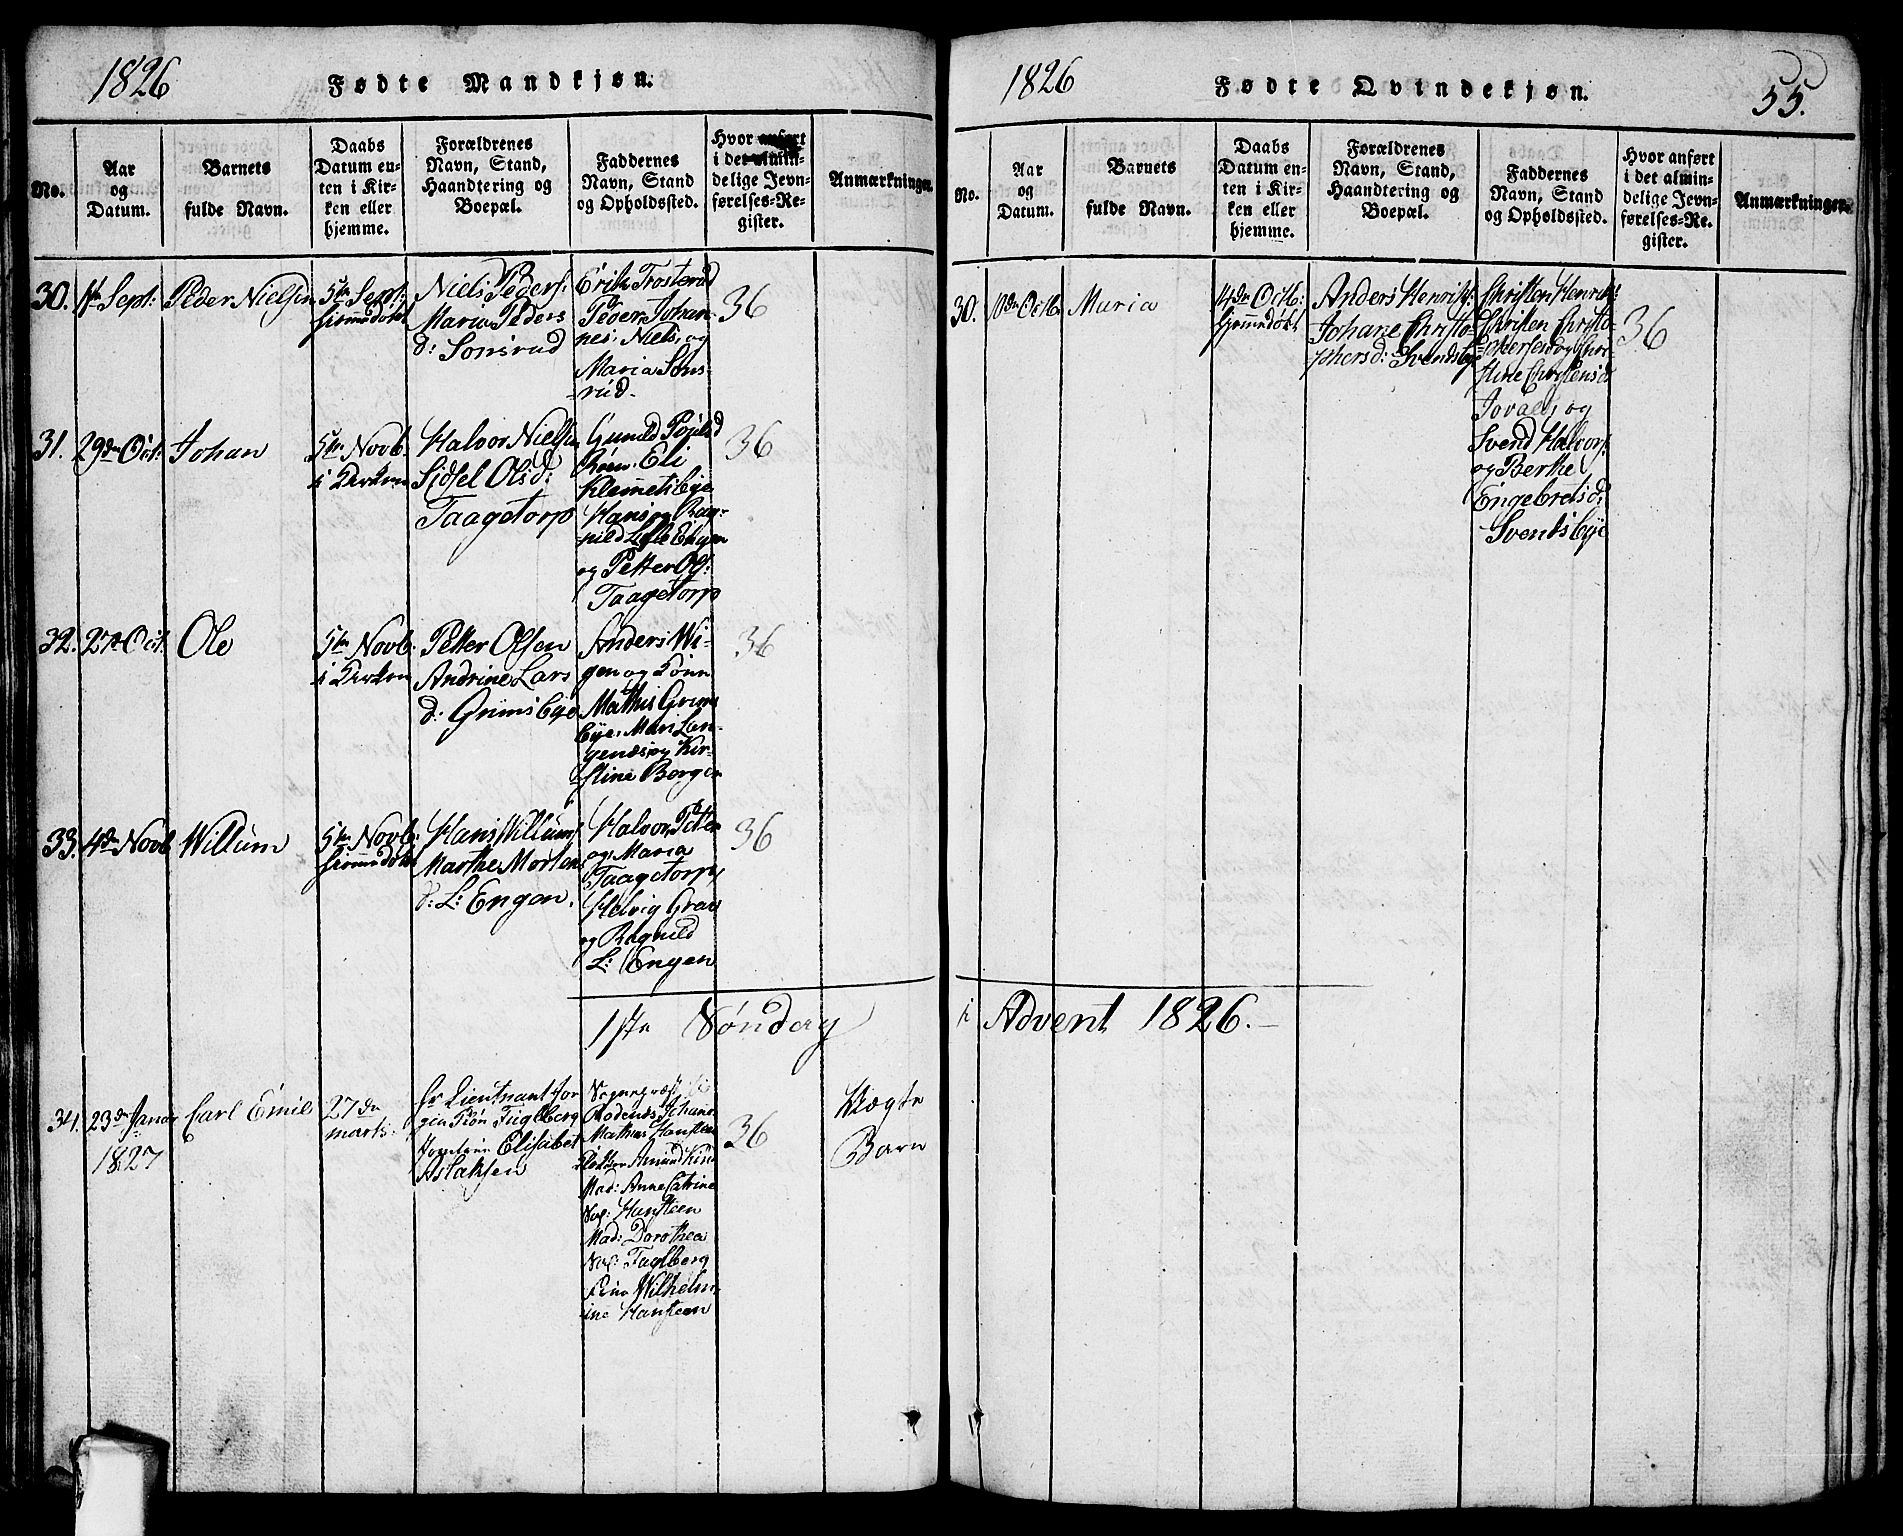 1826
Fødte Mandkjøn.
No.
Aar
og
Datum.
Barnets
fulde Navn.
Daabs
Datum en-
ten i Kir-
ken eller
hjemme.
Forældrenes
Navn, Stand,
Haandtering og
Boepæl.
Faddernes
Navn, Stand
og Opholdssted.
Hvor anført
i det almin-
delige Jevn-
førelses-Re-
gister.
Anmærkninger.
30.
Sept:
Peder Nielsen
5te Sept:
hjemmedøbt
Niels Peders:
Maria Peders
d: Sonsrud
Erik Trosterud
Peder, Johan-
nes, Niels, og
Maria Sons-
rud.
36
31.
29de Oct:
Johan
5te Novb:
i Kirken
Halvor Nielsen
Sidsel Olsd:
Taagetorp
Gunild
Eli
Klemetsbye
Hans og Rag-
nild Lille Engen
og Petter Ols:
Taagetorp
36
32.
27de Oct:
Ole
5te Novb:
i Kirken
Petter Olsen
Andrine Lars
d: Grimsbye
Anders Wi-
gen og Kone
Mathis Grims
bye, Mari Lan-
genæs og Kir-
stine Borgen
36
33.
4de Novb
Willum
5te Novb:
hjemmedøbt
Hans Willums:
Marthe Morten
d: L: Engen.
Halvor, Petter
og Maria
Taagetorp,
Helvig Grav
og Ragnild
L: Engen
36
1ste Søndag
34.
23de Januar
1827
Carl Emil
27de
marts.
Hr Lieutnant Jør
gen Fuglberg
Jomfrue Elisabet
Aslaksen
Johans
Mathias Hansteen
Amund
Mad: Anne Catrine
Sop: Hansteen
Mad: Dorothea
Sop: Fuglberg
Wilhelm-
ine Hansteen
36
Uægte
Barn
1826
Fødte Qvindekjøn.
55.
No.
Aar
og
Datum.
Barnets
fulde Navn.
Daabs
Datum en-
ten i Kir-
ken eller
hjemme.
Forældrenes
Navn, Stand,
Haandtering og
Boepæl.
Faddernes
Navn, Stand
og Opholdssted.
Hvor anført
i det almin-
delige Jevn-
førelses-Re-
gister.
Anmærkninger.
30.
10de Octb.
Maria
14de Octb:
hjemmedøbt
Anders Henriks:
Johane Christo-
phersd: Svendsbye
Christen Henriks:
Christen Christo-
phersen og Chri-
stine Christensd
Jovall, og
Svend Halvors:
og Berthe
Engebretsd,
Svendsbye
36
i Advent 1826.